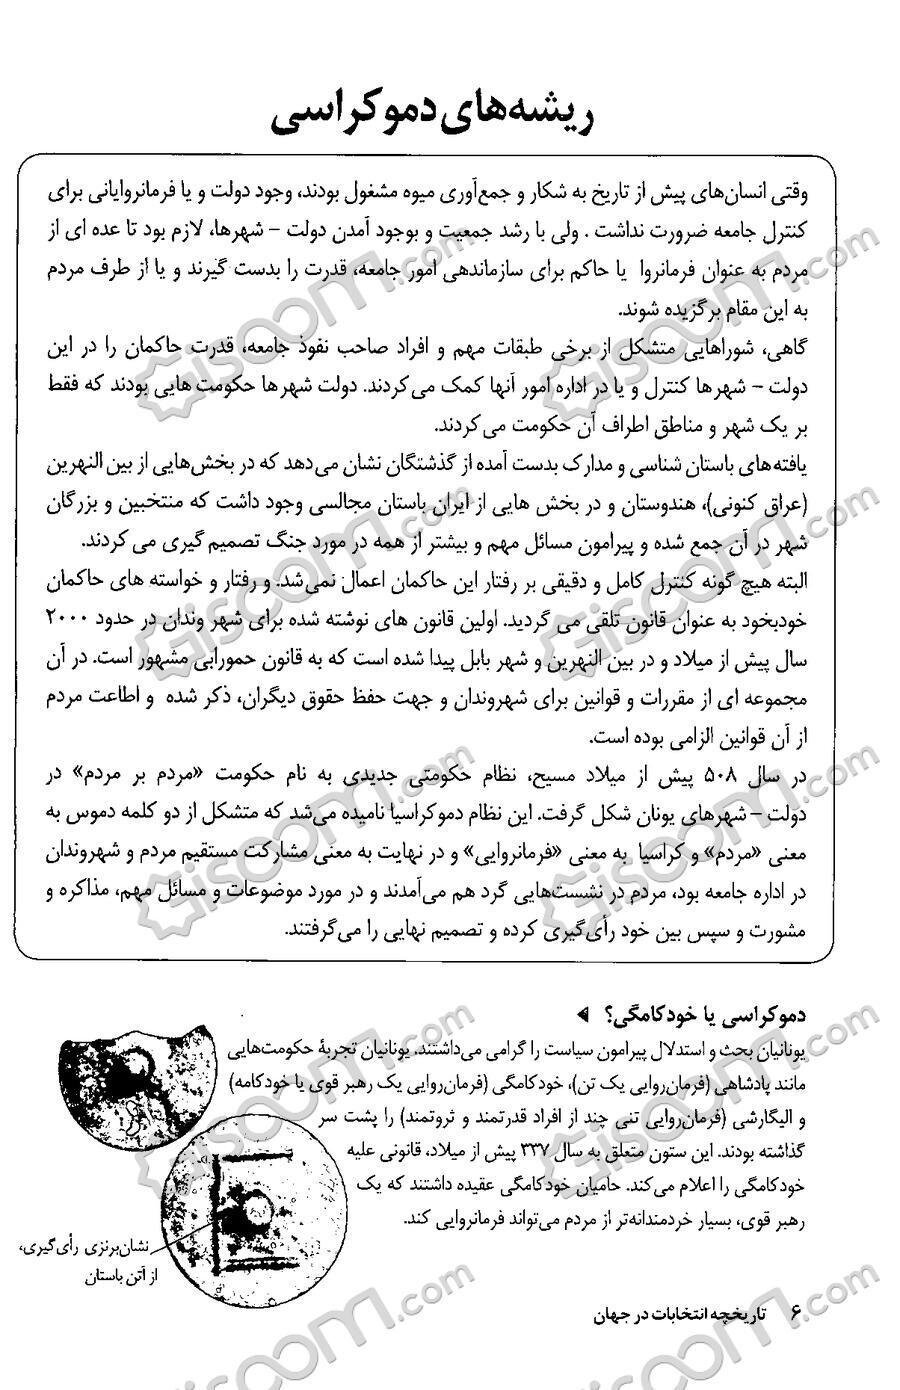 ریشه‌های دموکراسی
وقتی انسان‌های پیش از تاریخ به شکار و جمع‌آوری میوه مشغول بودند، وجود دولت و یا فرمانروایانی برای
کنترل جامعه ضرورت نداشت . ولی با رشد جمعیت و بوجود آمدن دولت – شهرها، لازم بود تا عده ای از
مردم به عنوان فرمانروا یا حاکم برای سازماندهی امور جامعه، قدرت را بدست گیرند و یا از طرف مردم
به این مقام برگزیده شوند.
گاهی، شوراهایی متشکل از برخی طبقات مهم و افراد صاحب نفوذ جامعه، قدرت حاکمان را در این
دولت – شهرها کنترل و یا در اداره امور آنها کمک می‌کردند. دولت شهرها حکومت هایی بودند که فقط
بر یک شهر و مناطق اطراف آن حکومت می‌کردند.
یافته‌های باستان شناسی و مدارک بدست آمده از گذشتگان نشان می‌دهد که در بخش‌هایی از بین النهرین
(عراق کنونی)، هندوستان و در بخش هایی از ایران باستان مجالسی وجود داشت که منتخبین و بزرگان
شهر در آن جمع شده و پیرامون مسائل مهم و بیشتر از همه در مورد جنگ تصمیم گیری می کردند.
البته هیچ گونه کنترل کامل و دقیقی بر رفتار این حاکمان اعمال نمی‌شد. و رفتار و خواسته های حاکمان
خودبخود به عنوان قانون تلقی می گردید. اولین قانون های نوشته شده برای شهر وندان در حدود ۲۰۰۰
سال پیش از میلاد و در بین النهرین و شهر بابل پیدا شده است که به قانون حمورابی مشهور است. در آن
مجموعه ای از مقررات و قوانین برای شهروندان و جهت حفظ حقوق دیگران، ذکر شده و اطاعت مردم
از آن قوانین الزامی بوده است.
در سال ۵۰۸ پیش از میلاد مسیح، نظام حکومتی جدیدی به نام حکومت «مردم بر مردم» در
دولت – شهرهای یونان شکل گرفت. این نظام دموکراسیا نامیده می‌شد که متشکل از دو کلمه دموس به
معنی «مردم» و کراسیا به معنی «فرمانروایی» و در نهایت به معنی مشارکت مستقیم مردم و شهروندان
در اداره جامعه بود، مردم در نشست‌هایی گرد هم می‌آمدند و در مورد موضوعات و مسائل مهم، مذاکره و
مشورت و سپس بین خود رأی‌گیری کرده و تصمیم نهایی را می‌گرفتند.
دموکراسی یا خودکامگی؟
یونانیان بحث و استدلال پیرامون سیاست را گرامی می‌داشتند. یونانیان تجربهٔ حکومت‌هایی
مانند پادشاهی (فرمان‌روایی یک تن)، خودکامگی (فرمان‌روایی یک رهبر قوی یا خودکامه)
و الیگارشی (فرمان‌روایی تنی چند از افراد قدرتمند و ثروتمند) را پشت سر
گذاشته بودند. این ستون متعلق به سال ۳۳۷ پیش از میلاد، قانونی علیه
خودکامگی را اعلام می‌کند. حامیان خودکامگی عقیده داشتند که یک
رهبر قوی، بسیار خردمندانه‌تر از مردم می‌تواند فرمانروایی کند.
نشان‌برنزی رأی‌گیری،
از آتن باستان
۶ تاریخچه انتخابات در جهان
Giscoom.com
Giscoom.com
Giscoom.com
Giscoom.com
Giscoom.com
Giscoom.com
Giscoom.com
Giscoom.com
Giscoom.com
Giscoom.com